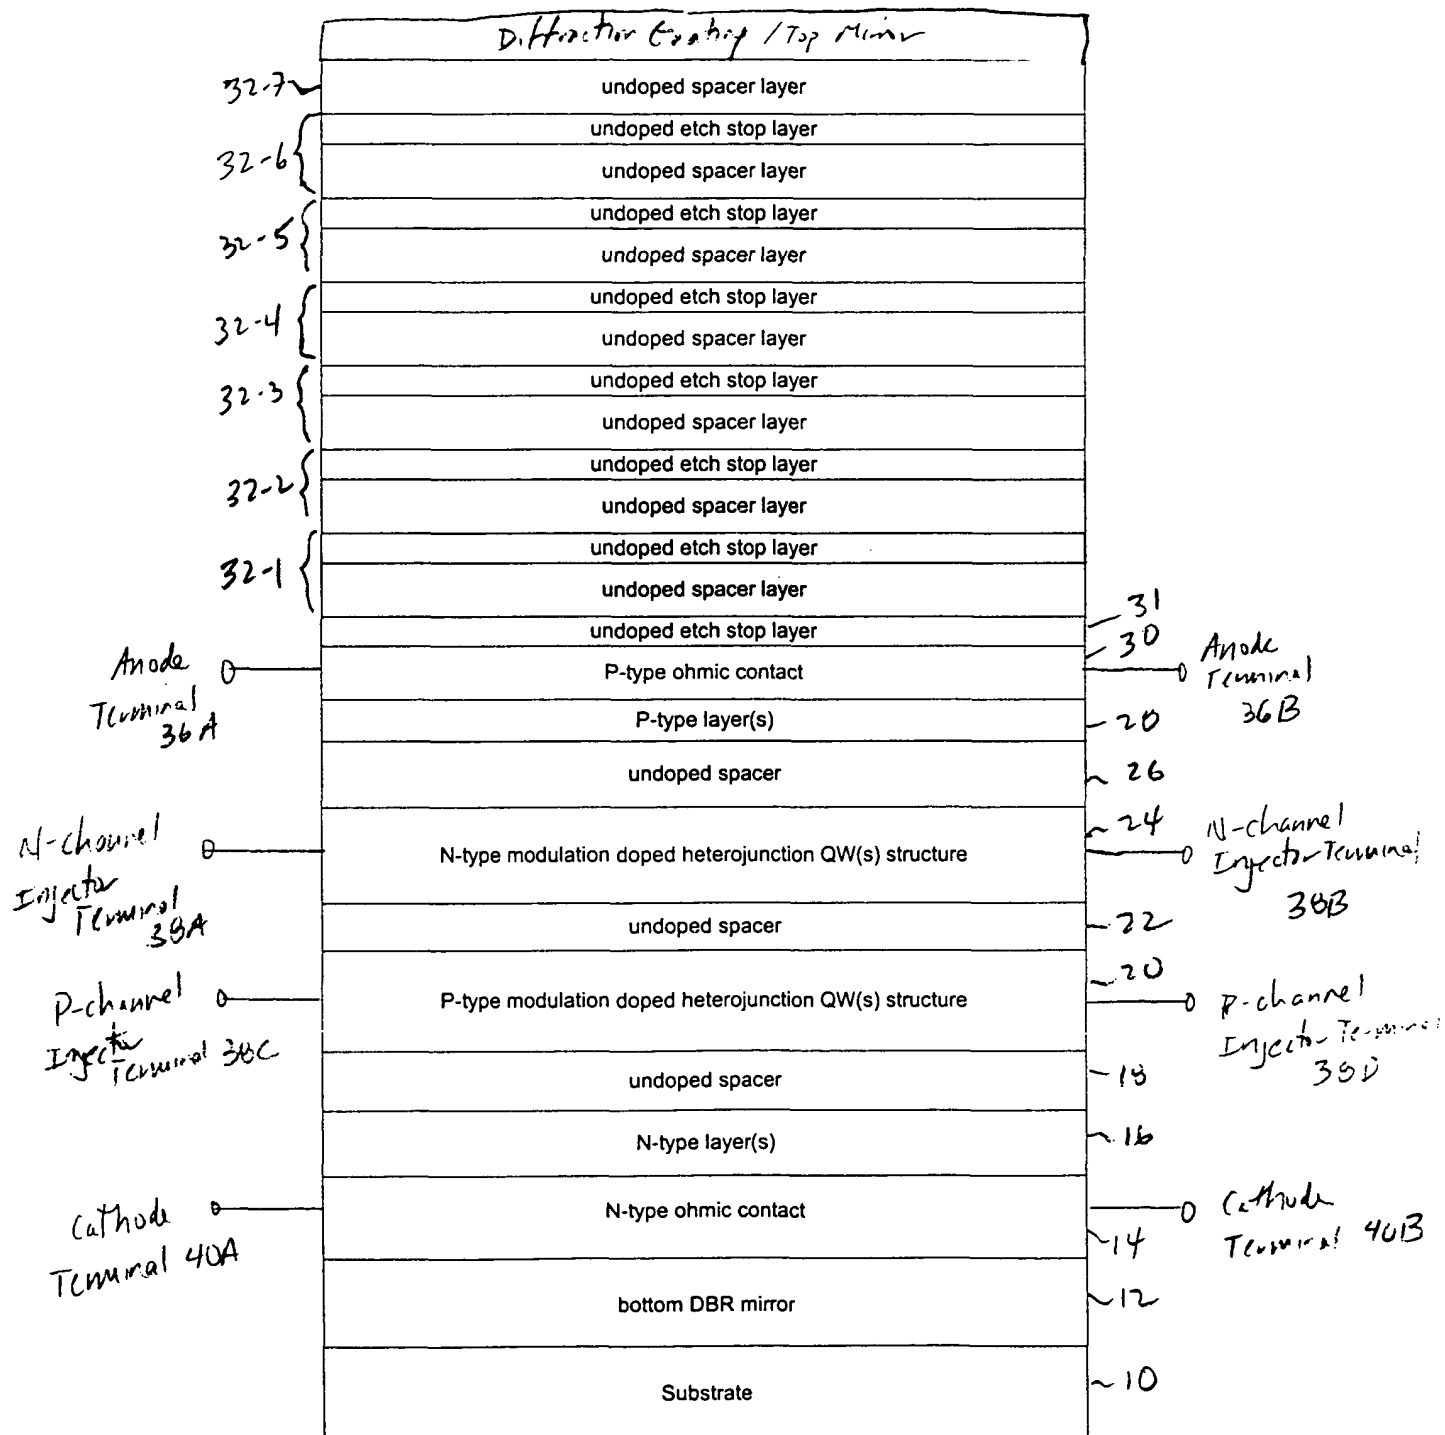 Diffraction Grating / Top Mirror
32-7
undoped spacer layer
undoped etch stop layer
32-6
undoped spacer layer
undoped etch stop layer
32-5
undoped spacer layer
undoped etch stop layer
32-4
undoped spacer layer
undoped etch stop layer
32-3
undoped spacer layer
undoped etch stop layer
32-2
undoped spacer layer
undoped etch stop layer
32-1
undoped spacer layer
31
undoped etch stop layer
30
Anode
Terminal
36A
P-type ohmic contact
Anode
Terminal
36B
P-type layer(s)
28
undoped spacer
26
24
N-channel
Injector
Terminal
38A
N-type modulation doped heterojunction QW(s) structure
N-channel
Injector Terminal
38B
undoped spacer
22
20
P-channel
Injector
Terminal 38C
P-type modulation doped heterojunction QW(s) structure
P-channel
Injector Terminal
38D
undoped spacer
18
N-type layer(s)
16
Cathode
Terminal 40A
N-type ohmic contact
Cathode
Terminal 40B
14
bottom DBR mirror
12
Substrate
10